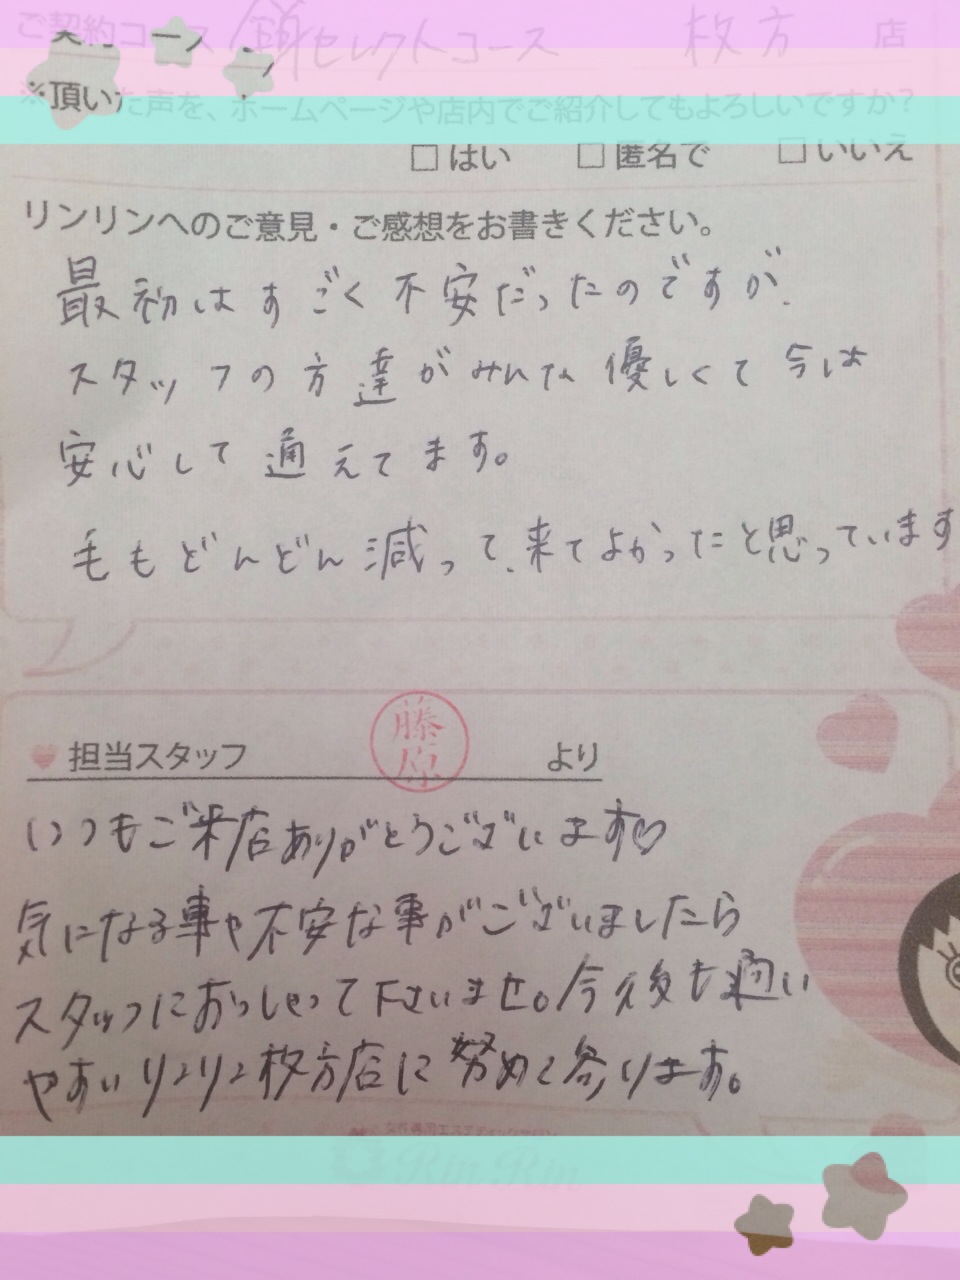 ご契約コース 顔セレクトコース 枚方 店
※頂いた声を、ホームページや店内でご紹介してもよろしいですか?
□はい □匿名で □いいえ
リンリンへのご意見・ご感想をお書きください。
最初はすごく不安だったのですが、
スタッフの方達がみんな優しくて今は
安心して通えてます。
毛もどんどん減って、来てよかったと思っています
担当スタッフ 藤原 より
いつもご来店ありがとうございます♡
気になる事や不安な事がございましたら
スタッフにおっしゃって下さいませ。今後も通い
やすいリンリン枚方店に努めて参ります。
RinRin